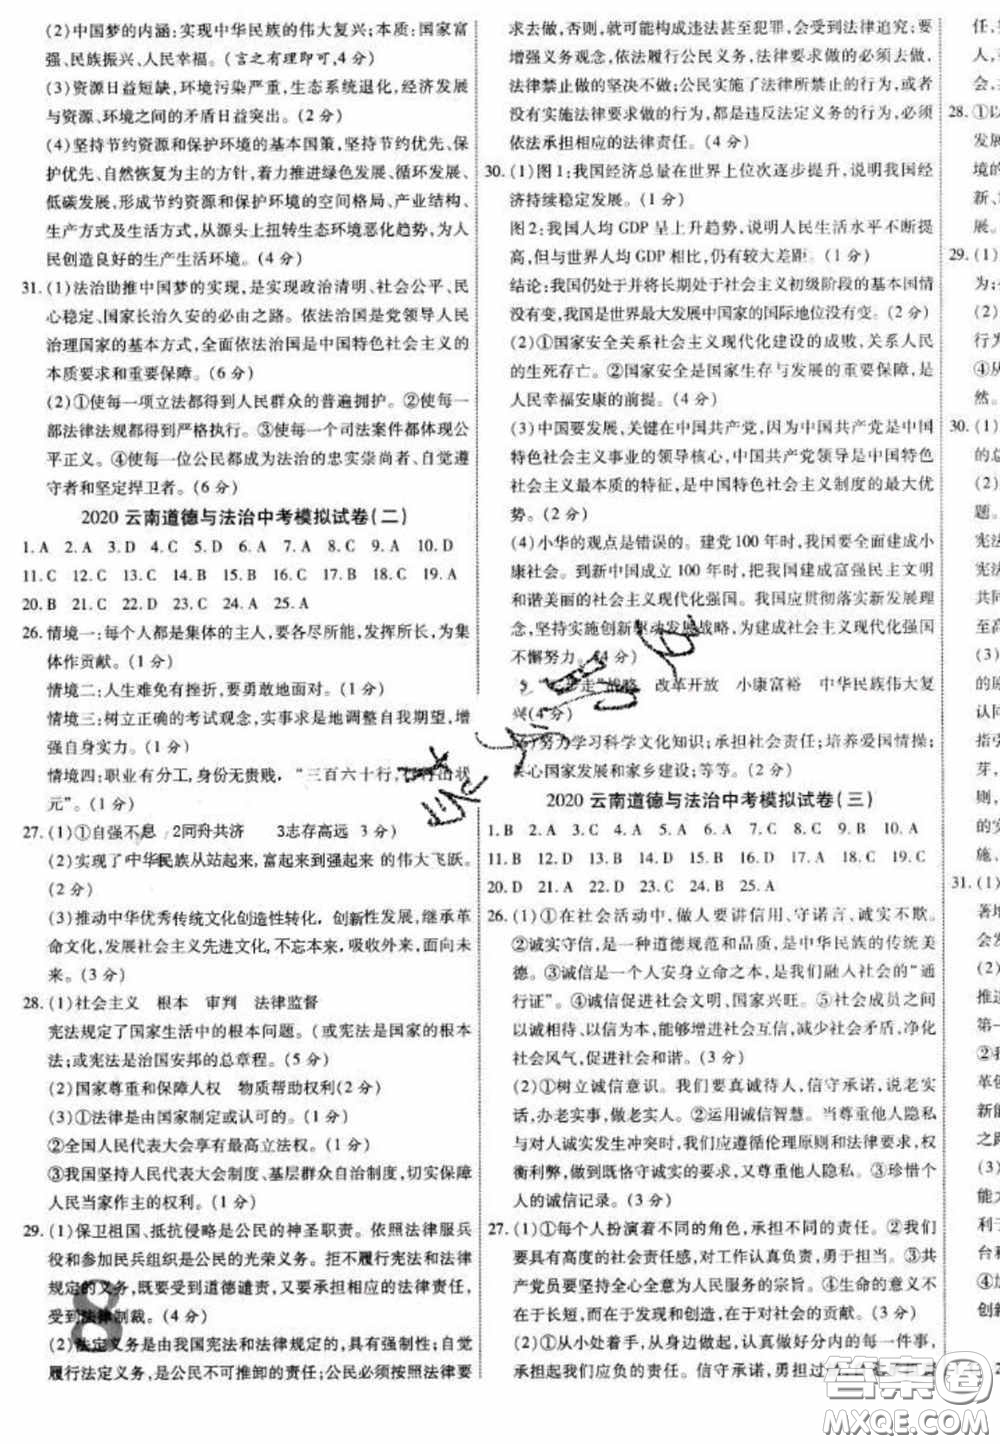 (2)中国梦的内涵:实现中华民族的伟大复兴;本质:国家富
强、民族振兴、人民幸福。(言之有理即可,4分)
(3)资源日益短缺,环境污染严重,生态系统退化,经济发展
与资源、环境之间的矛盾日益突出。(2分)
(4)坚持节约资源和保护环境的基本国策,坚持节约优先、保
护优先、自然恢复为主的方针,着力推进绿色发展、循环发展、
低碳发展,形成节约资源和保护环境的空间格局、产业结构、
生产方式及生活方式,从源头上扭转生态环境恶化趋势,为人
民创造良好的生产生活环境。(4分)
31.(1)法治助推中国梦的实现,是实现政治清明、社会公平、民
心稳定、国家长治久安的必由之路。依法治国是党领导人民
治理国家的基本方式,全面依法治国是中国特色社会主义的
本质要求和重要保障。(6分)
(2)①使每一项立法都得到人民群众的普遍拥护。②使每一
部法律法规都得到严格执行。③使每一个司法案件都体现公
平正义。④使每一位公民都成为法治的忠实崇尚者、自觉遵
守者和坚定捍卫者。(6分)
2020云南道德与法治中考模拟试卷(二)
1.A 2.A 3.D 4.C 5.D 6.A 7.A 8.B 9.A 10.D
11.C 12.C 13.C 14.B 15.B 16.B 17.C 18.C 19.A
20.B 21.B 22.D 23.C 24.A 25.A
26.情境一:每个人都是集体的主人,要各尽所能,发挥所长,为集
体作贡献。(1分)
情境二:人生难免有挫折,要勇敢地面对。(1分)
情境三:树立正确的考试观念,实事求是地调整自我期望,增
强自身实力。(1分)
情境四:职业有分工,身份无贵贱,“三百六十行,行行出状
元”。(1分)
27.(1)①自强不息 2同舟共济 3志存高远 3分)
(2)实现了中华民族从站起来,富起来到强起来 的伟大飞跃。
(2分)
(3)推动中华优秀传统文化创造性转化,创新性发展,继承革
命文化,发展社会主义先进文化,不忘本来,吸收外来,面向未
来。(3分)
28.(1)社会主义 根本 审判 法律监督
宪法规定了国家生活中的根本问题。(或宪法是国家的根本
法;或宪法是治国安邦的总章程。(5分)
(2)国家尊重和保障人权 物质帮助权利(2分)
(3)①法律是由国家制定或认可的。(1分)
②全国人民代表大会享有最高立法权。(1分)
③我国坚持人民代表大会制度、基层群众自治制度,切实保障
人民当家作主的权利。(1分)
29.(1)保卫祖国、抵抗侵略是公民的神圣职责。依照法律服兵
役和参加民兵组织是公民的光荣义务。拒不履行宪法和法律
规定的义务,既要受到道德谴责,又要承担相应的法律责任,
受到法律制裁。(4分)
(2)法定义务是由我国宪法和法律规定的,具有强制性;自觉
履行法定义务,是公民不可推卸的责任;公民必须按照法律要
8
求去做,否则,就可能构成违法甚至犯罪,会受到法律追究;要
增强义务观念,依法履行公民义务,法律要求做的必须去做,
法律禁止做的坚决不做;公民实施了法律所禁止的行为,或者
没有实施法律要求做的行为,都是违反法定义务的行为,必须
依法承担相应的法律责任。(4分)
30.(1)图1:我国经济总量在世界上位次逐步提升,说明我国经
济持续稳定发展。(1分)
图2:我国人均GDP呈上升趋势,说明人民生活水平不断提
高,但与世界人均GDP相比,仍有较大差距。(1分)
结论:我国仍处于并将长期处于社会主义初级阶段的基本国情
没有变,我国是世界最大发展中国家的国际地位没有变。(2分)
(2)①国家安全关系社会主义现代化建设的成败,关系人民
的生死存亡。②国家安全是国家生存与发展的重要保障,是
人民幸福安康的前提。(4分)
(3)中国要发展,关键在中国共产党,因为中国共产党是中国
特色社会主义事业的领导核心,中国共产党领导是中国特色
社会主义最本质的特征,是中国特色社会主义制度的最大优
势。(2分)
(4)小华的观点是错误的。建党100年时,我国要全面建成小
康社会。到新中国成立100年时,要建成富强民主文明和
谐美丽的社会主义现代化强国。我国应贯彻落实新发展理
念,坚持实施创新驱动发展战略,为建成社会主义现代化强国
不懈努力。(4分)
步走”战略 改革开放 小康富裕 中华民族伟大复
兴(4分)
努力学习科学文化知识;承担社会责任;培养爱国情操;
关心国家发展和家乡建设;等等。(2分)
2020云南道德与法治中考模拟试卷(三)
1.B 2.A 3.C 4.A 5.A 6.A 7.C 8.B 9.B 10.A
11.B 12.D 13.D 14.B 15.D 16.C 17.B 18.C 19.C
20.D 21.A 22.D 23.C 24.B 25.A
26.(1)①在社会活动中,做人要讲信用、守诺言、诚实不欺。
②诚实守信,是一种道德规范和品质,是中华民族的传统美
德。③诚信是一个人安身立命之本,是我们融入社会的“通
行证”。④诚信促进社会文明、国家兴旺。⑤社会成员之间
以诚相待、以信为本,能够增进社会互信,减少社会矛盾,净化
社会风气,促进社会和谐。(3分)
(2)①树立诚信意识。我们要真诚待人,信守承诺,说老实
话,办老实事,做老实人。②运用诚信智慧。当尊重他人隐私
与对人诚实发生冲突时,我们应遵循伦理原则和法律要求,
权衡利弊,做到既恪守诚实的要求,又尊重他人隐私。③珍惜个
人的诚信记录。(3分)
27.(1)①每个人扮演着不同的角色,承担不同的责任。②我们
要具有高度的社会责任感,对工作认真负责,勇于担当。③共
产党员要坚持全心全意为人民服务的宗旨。④生命的意义不
在于长短,而在于发现和创造,在于对社会的贡献。(3分)
(2)①从小处着手,从身边做起,认真做好分内的每一件事,
承担起我们应负的责任。信守承诺,勇担过
28.①以
29.(1)
30.(1)
31.(1)
答案圈
MXQE.COM